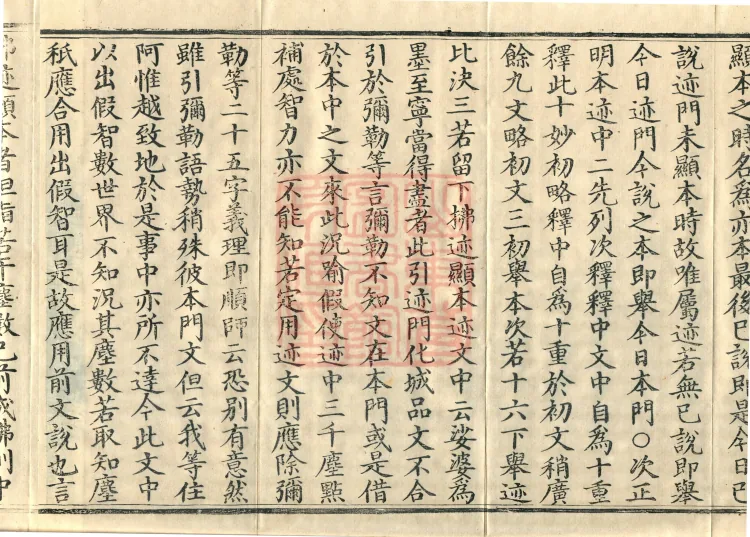 顯本之時名為亦本最後已說即是今日已
說迹門未顯本時故唯屬迹若無已說即舉
今日迹門今說之本即舉今日本門○次正
明本迹中二先列次釋釋中文中自為十重
釋此十妙初略釋中自為十重於初文稍廣
餘九文略初文三初舉本次若十六下舉迹
比決三若留下拂迹顯本迹文中云娑婆為
墨至寧當得盡者此引迹門化城品文不合
引於彌勒等言彌勒不知文在本門或是借
於本中之文來此況喻假使迹中三千塵點
補處智力亦不能知若定用迹文則應除彌
勒等二十五字義理即順師云恐別有意然
雖引彌勒語勢稍殊彼本門文但云我等住
阿惟越致地於是事中亦所不達今此文中
以出假智數世界不知況其塵數若取知塵
秖應合用出假智耳是故應用前文說也言
迹顯本者但指若干塵數已前成佛